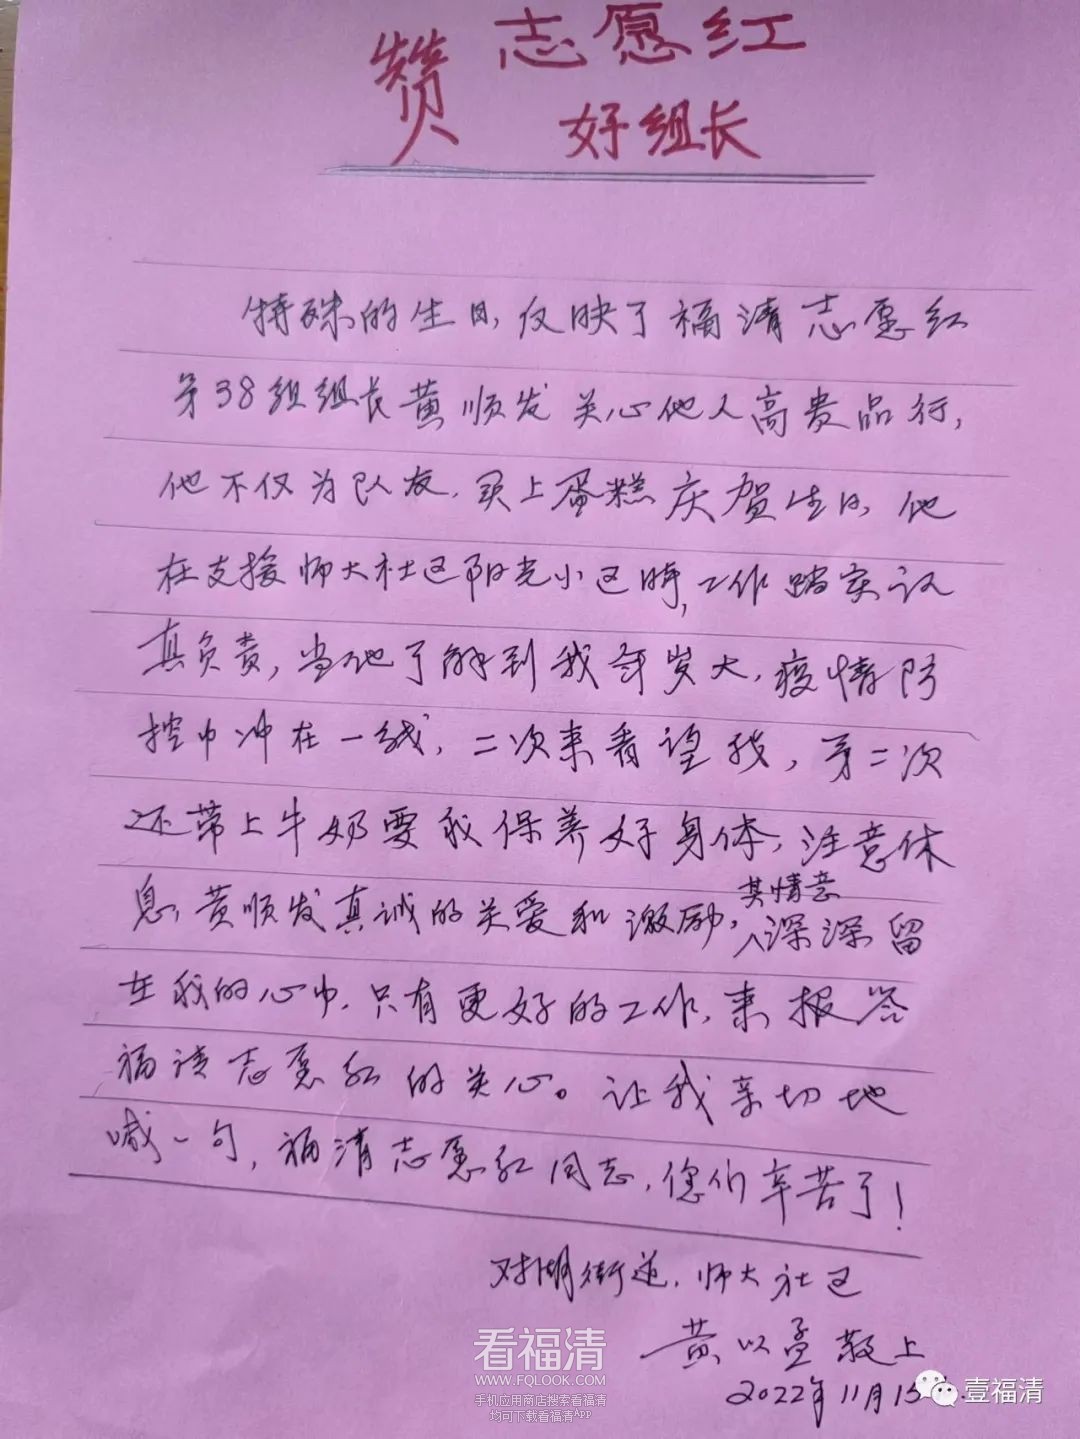 赞 志愿红
好组长
特殊的生日,反映了福清志愿红
第38组组长黄顺发关心他人高贵品行,
他不仅为队友,买上蛋糕庆贺生日,他
在支援师大社区阳光小区时,工作踏实认
真负责,当他了解到我年岁大,疫情防
控中冲在一线,二次来看望我,第二次
还带上牛奶要我保养好身体,注意休
息,黄顺发真诚的关爱和激励,其情意深深留
在我的心中,只有更好的工作,来报答
福清志愿红的关心。让我亲切地
喊一句,福清志愿红同志,您们辛苦了!
对湖街道,师大社区
黄以孟敬上
2022年11月15
看福清
WWW.FQLOOK.COM
手机应用商店搜索看福清
均可下载看福清App
壹福清